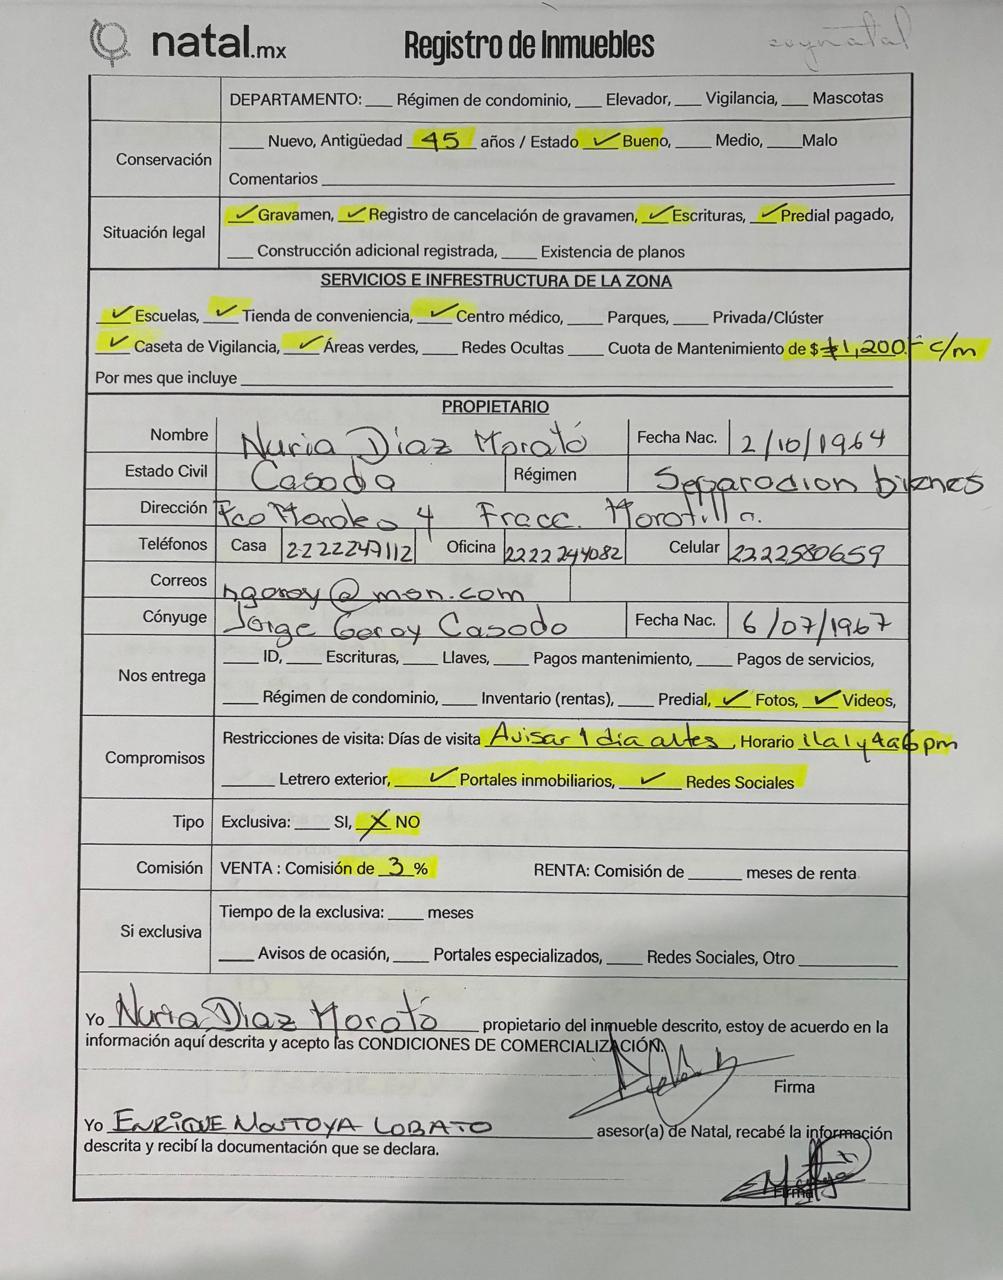 natal.mx Registro de Inmuebles
DEPARTAMENTO: ___ Régimen de condominio, ___ Elevador, ___ Vigilancia, ___ Mascotas
Conservación
___ Nuevo, Antigüedad 45 años / Estado ✓ Bueno, ___ Medio, ___ Malo
Comentarios
Situación legal
✓ Gravamen, ✓ Registro de cancelación de gravamen, ✓ Escrituras, ✓ Predial pagado,
___ Construcción adicional registrada, ___ Existencia de planos
SERVICIOS E INFRESTRUCTURA DE LA ZONA
✓ Escuelas, ✓ Tienda de conveniencia, ✓ Centro médico, ___ Parques, ___ Privada/Clúster
✓ Caseta de Vigilancia, ✓ Áreas verdes, ___ Redes Ocultas ___ Cuota de Mantenimiento de $ 1,200.- c/m
Por mes que incluye
PROPIETARIO
Nombre Nuria Díaz Morató Fecha Nac. 2/10/1964
Estado Civil Casada Régimen Separadion bienes
Dirección 4 Fracc.
Teléfonos Casa 2222247112 Oficina 2222244082 Celular 2222580659
Correos ngaray@msn.com
Cónyuge Jorge Garay Casado Fecha Nac. 6/07/1967
Nos entrega
___ ID, ___ Escrituras, ___ Llaves, ___ Pagos mantenimiento, ___ Pagos de servicios,
___ Régimen de condominio, ___ Inventario (rentas), ___ Predial, ✓ Fotos, ✓ Videos,
Compromisos
Restricciones de visita: Días de visita Avisar 1 dia antes, Horario 11a1 y 4a6pm
___ Letrero exterior, ✓ Portales inmobiliarios, ✓ Redes Sociales
Tipo Exclusiva: ___ SI, X NO
Comisión VENTA : Comisión de 3 % RENTA: Comisión de ___ meses de renta
Si exclusiva
Tiempo de la exclusiva: ___ meses
___ Avisos de ocasión, ___ Portales especializados, ___ Redes Sociales, Otro ___
Yo Nuria Diaz Morató propietario del inmueble descrito, estoy de acuerdo en la
información aquí descrita y acepto las CONDICIONES DE COMERCIALIZACIÓN.
Firma
Yo ENRIQUE MONTOYA LOBATO asesor(a) de Natal, recabé la información
descrita y recibí la documentación que se declara.
Firma